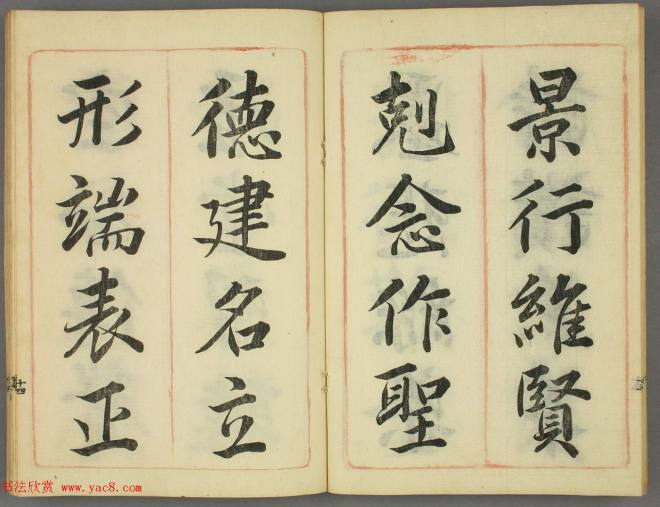 景行維賢
剋念作聖
德建名立
形端表正
十四
书法欣赏 www.yac8.com